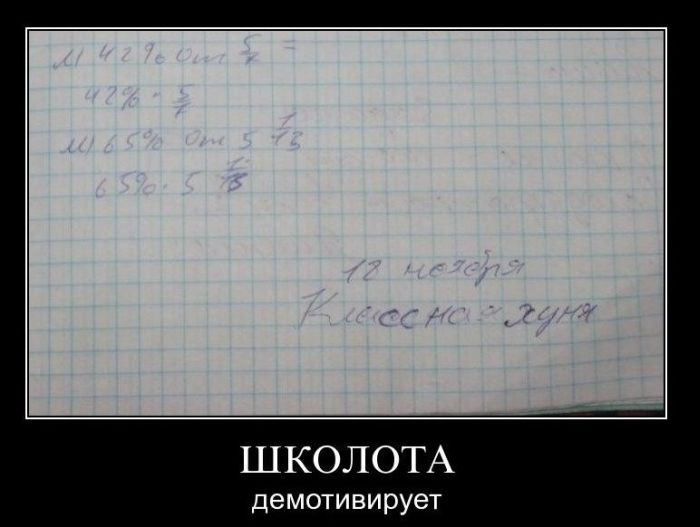 м) 42% от 5/7 =
42% · 5/7
м) 65% от 5 1/13
65% · 5 1/13
12 ноября
Классная хуня
ШКОЛОТА
демотивирует